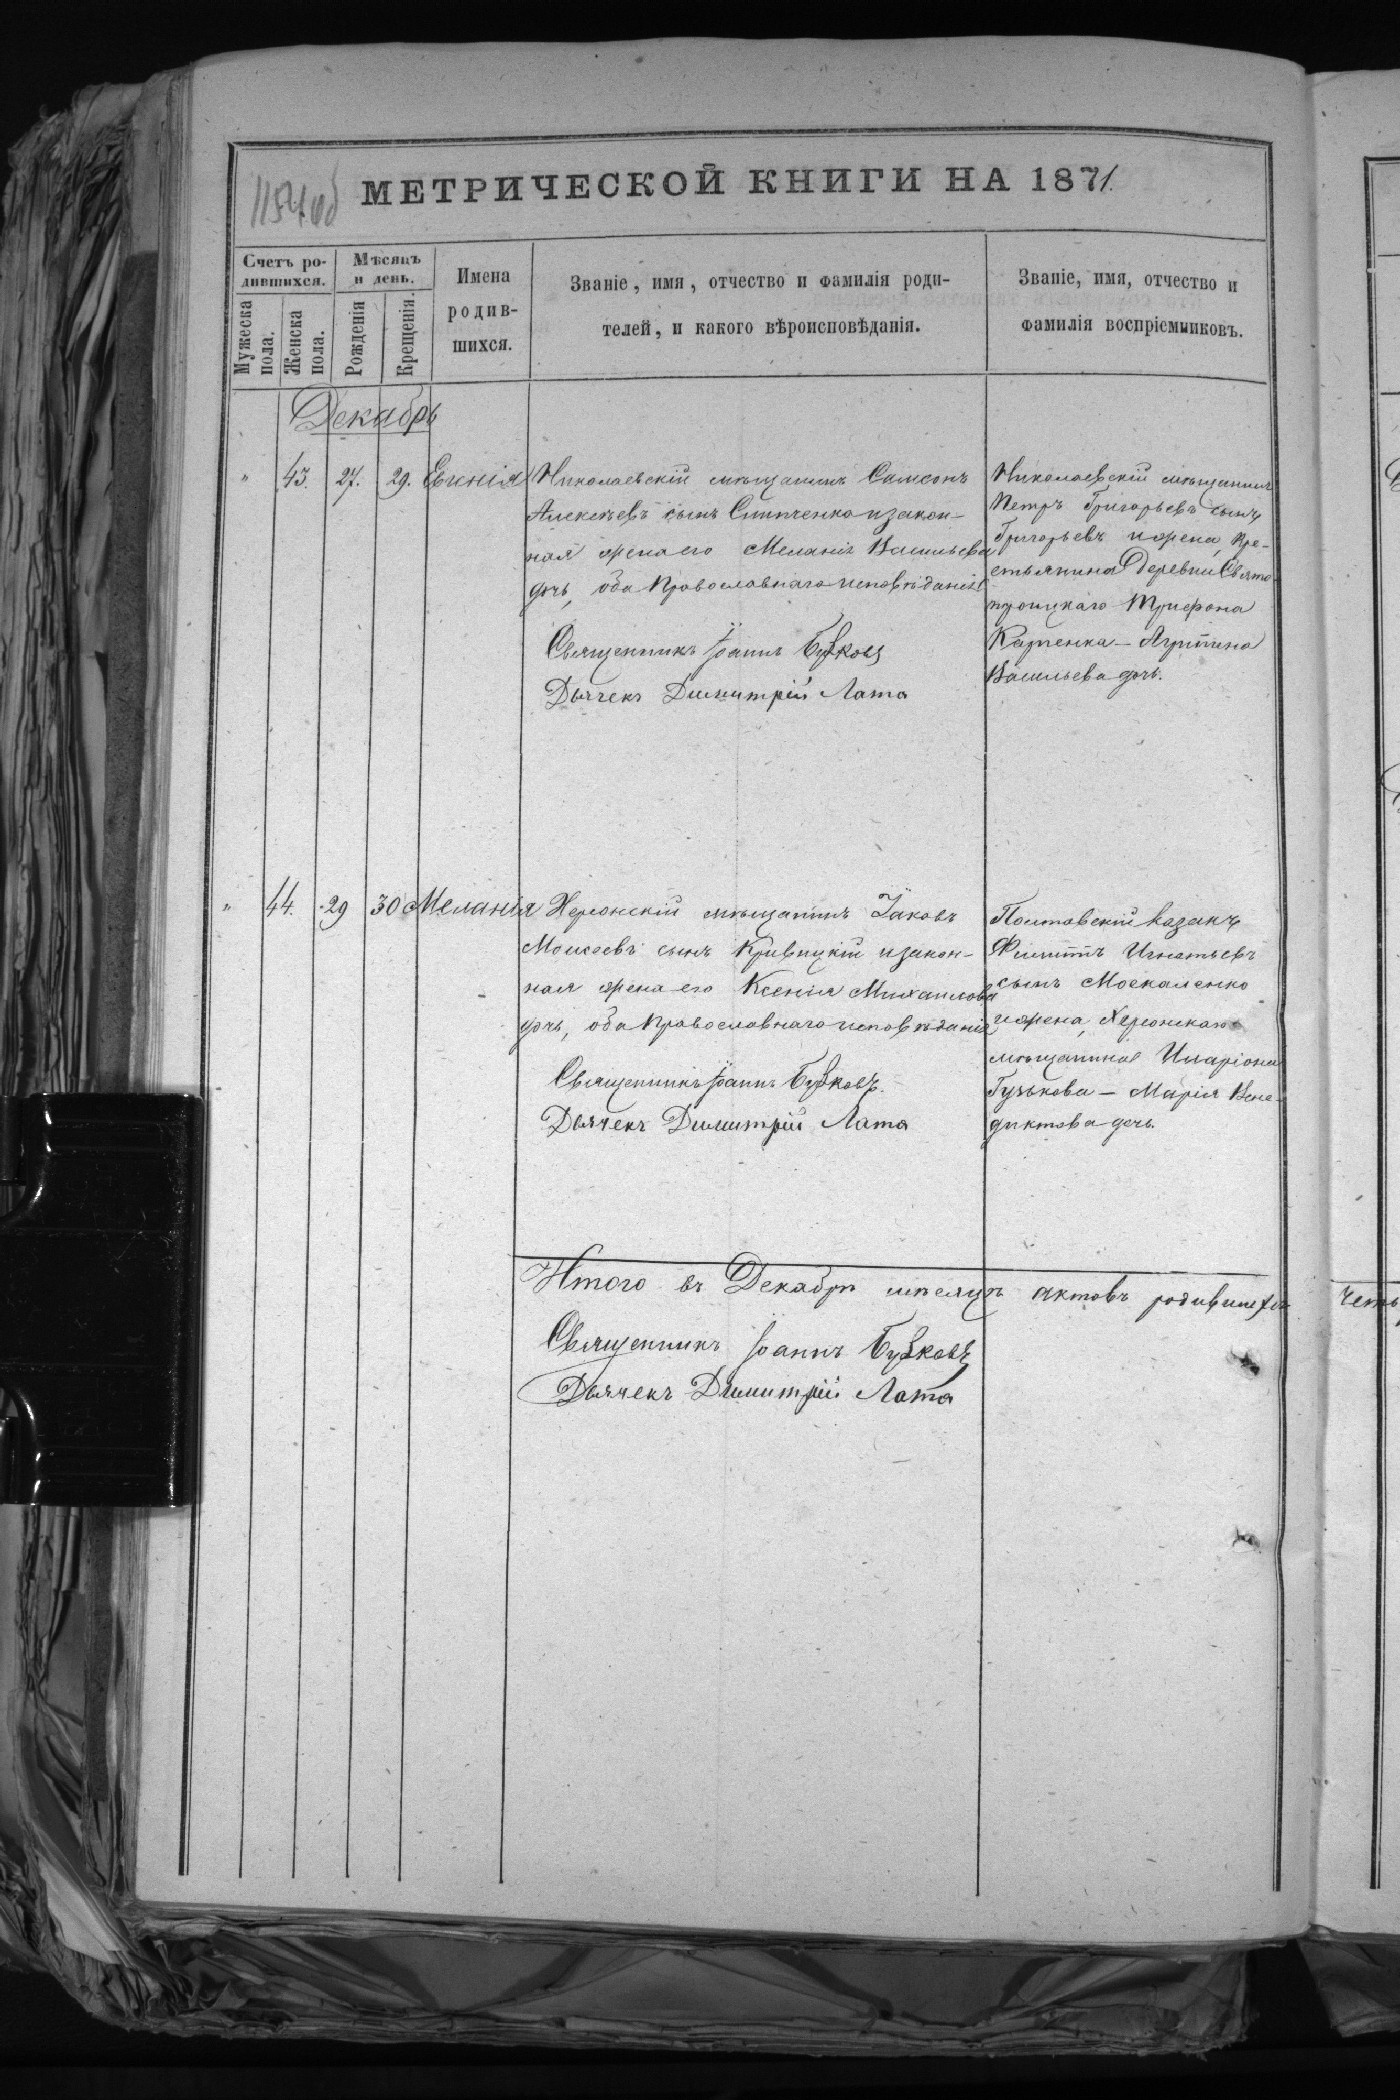 1154 об
МЕТРИЧЕСКОЙ КНИГИ НА 1871.
Счетъ ро-
дившихся.
Мужеска
пола.
Женска
пола.
Мѣсяцъ
и день.
Рожденія
Крещенія.
Имена
родив-
шихся.
Званіе, имя, отчество и фамилія роди-
телей, и какого вѣроисповѣданія.
Званіе, имя, отчество и
фамилія воспріемниковъ.
Декабрь
" 43. 27. 29.
Николаевскій мѣщанинъ Самсонъ
Алексѣевъ сынъ изакон-
ная жена его Меланія Васильева
дочь, оба Православнаго исповѣданія
Священникъ Іоаннъ
Дьячекъ Димитрій Лата
Николаевскій мѣщанинъ
Петръ Григорьевъ сынъ
Григорьевъ и жена, кре-
стьянина деревни Свято-
троицкаго Трифона
Васильева дочь.
" 44. 29 30 Меланія
Херсонскій мѣщанинъ Іаковъ
Моисеевъ сынъ Кривицкій изакон-
ная жена его Ксенія Михаилова
дочь, оба Православнаго исповѣданія
Священникъ Іоаннъ
Дьячекъ Димитрій Лата
Полтавскій козакъ
Филиппъ Игнатьевъ
сынъ Москаленко
и жена, Херсонскаго
мѣщанина Иларіона
Гузькова - Марія Вене-
диктова дочь.
Итого въ Декабрѣ мѣсяцѣ актовъ родившихся
четы
Священникъ Іоаннъ
Дьячекъ Димитрій Лата